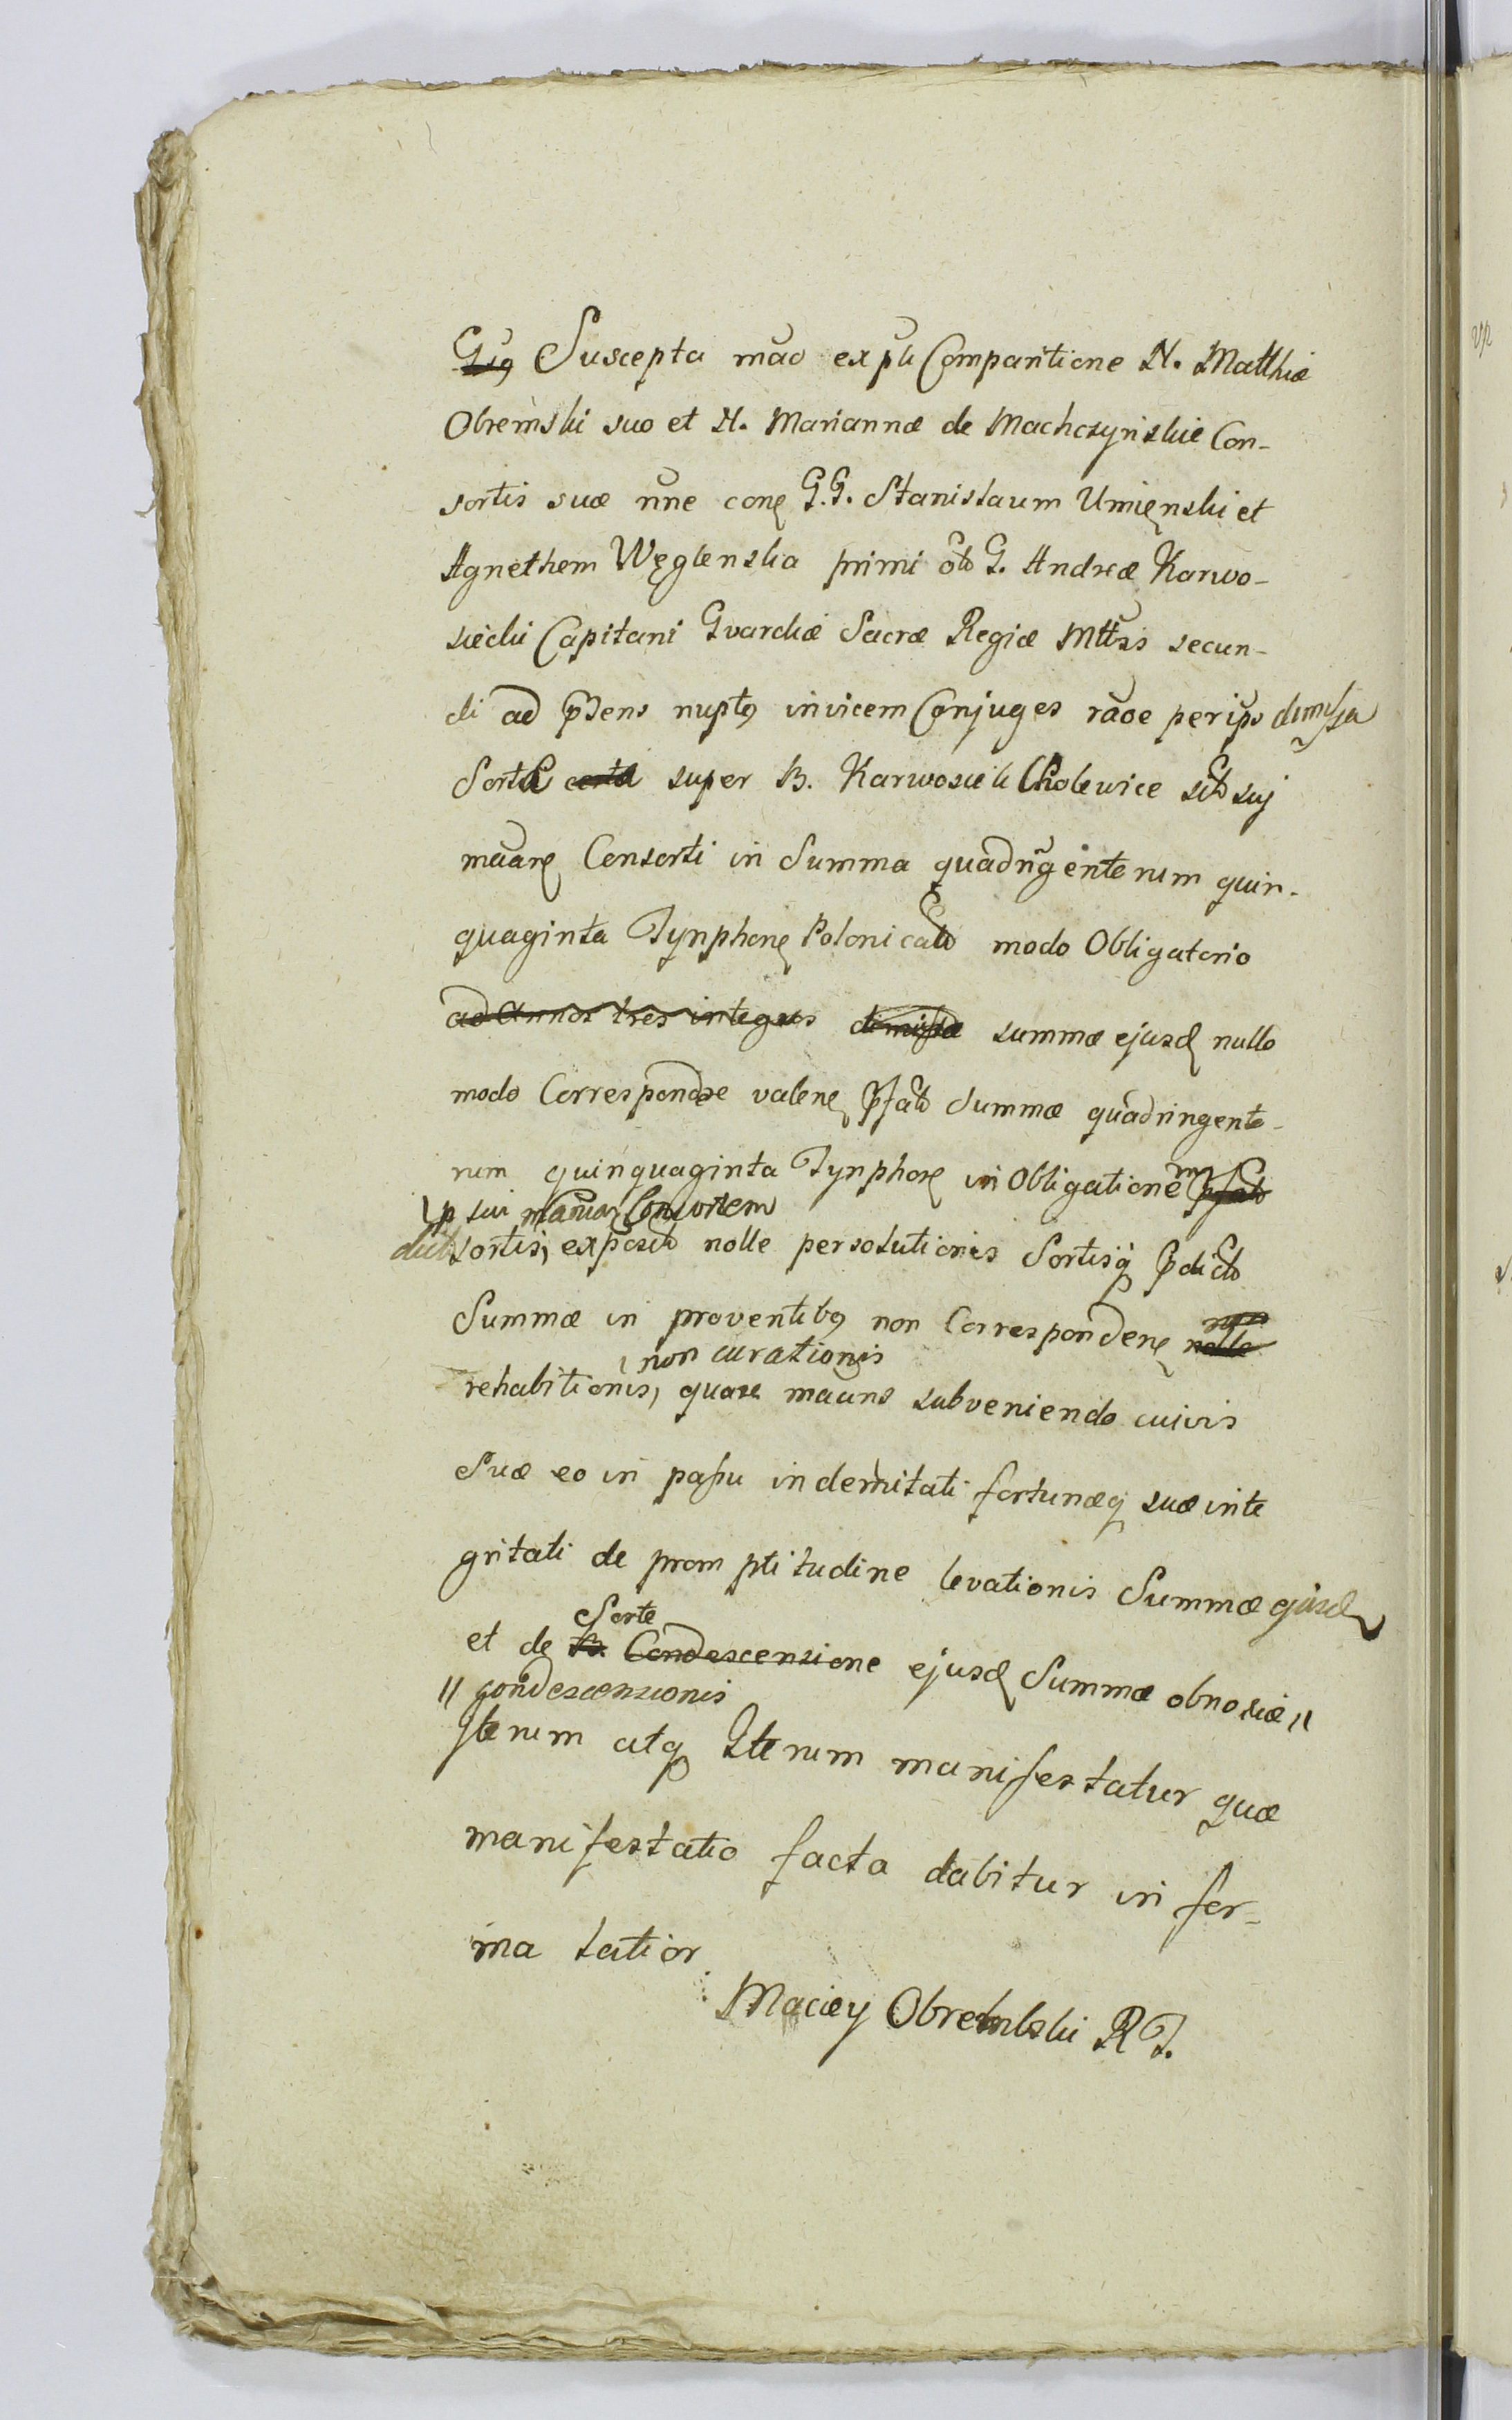 Suscepta mão ex płi Comparitione N. Matthiæ
Obremski suo et N. Mariannæ de Machczynskie Con-
sortis suæ nñe conę G.G. Stanislaum Umięnski et
Agnethem Węglenska primi õlo G. Andreæ Karwo-
siecki Capitani Gvardiæ Sacræ Regiæ Mttis secun-
di ad p̃sens nuptę invicem Conjuges rãoe per ip̃o dimissa
Sorte certa super B. Karwosieki Cholewice suj
mãnę Consorti in Summa quadringentorum quin-
quaginta Tynphonę Polonical modo Obligatorio
ad Annos tres integros dimissæ summæ ejusd nullo
modo Correspondre valenę p̃fato Summæ quadringento-
rum quinquaginta Tynphorę in Obligatione
sui Consortem
sortis, exposit nolle persolutionis Sortisq p̃dict
Summæ in proventibę non Correspondenę nolle
non curationis
rehabitionis, quare mãns subveniendo cuivis
Suæ eo in passu indemnitati fortunæq suæ inte
gritati de promptitudine levationis Summæ ejusd
Sorte
et de B. Condescensione ejusd Summæ obnoxiæ //
// condescensionis
Iterum atq Iterum manifestatur quæ
manifestatio facta dabitur in for-
ma latior
Maciey Obrembski R T.